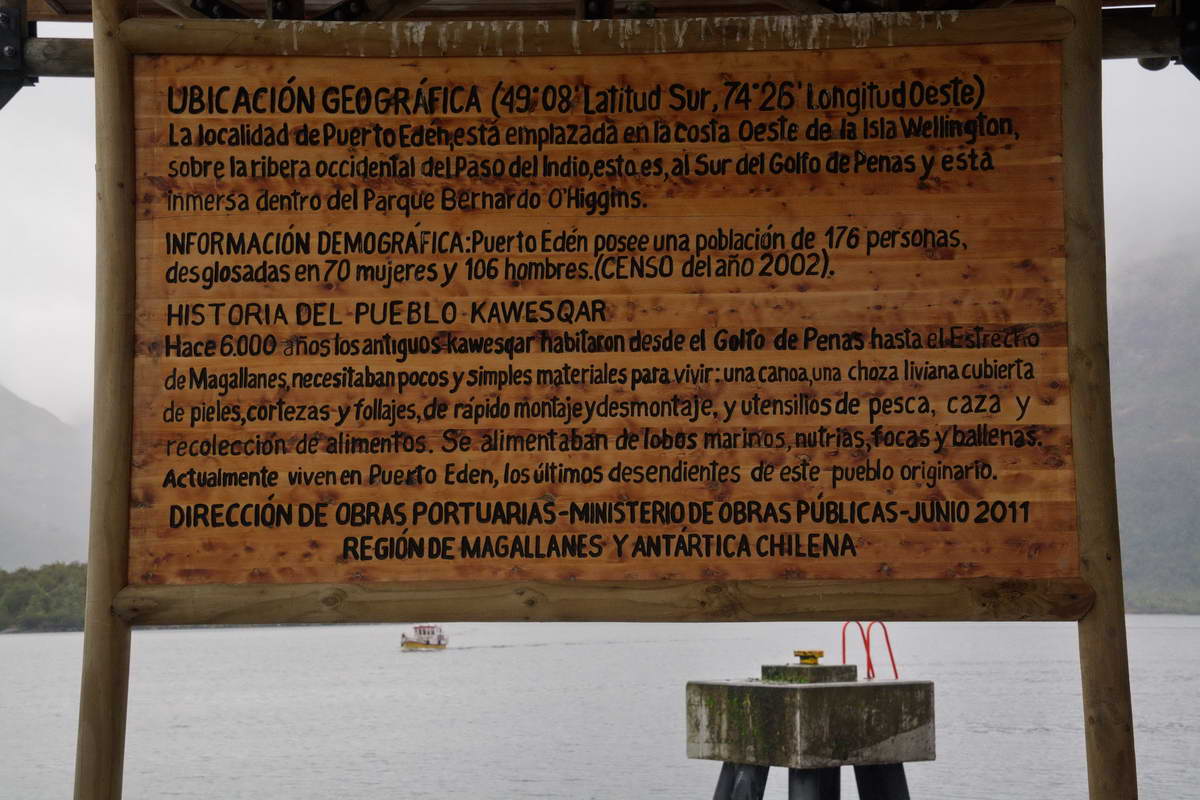 UBICACIÓN GEOGRÁFICA (49°08' Latitud Sur, 74°26' Longitud Oeste)
La localidad de Puerto Edén, está emplazada en la costa Oeste de la Isla Wellington,
sobre la ribera occidental del Paso del Indio, esto es, al Sur del Golfo de Penas y está
inmersa dentro del Parque Bernardo O'Higgins.
INFORMACIÓN DEMOGRÁFICA: Puerto Edén posee una población de 176 personas,
desglosadas en 70 mujeres y 106 hombres. (CENSO del año 2002).
HISTORIA DEL PUEBLO KAWESQAR
Hace 6.000 años los antiguos kawesqar habitaron desde el Golfo de Penas hasta el Estrecho
de Magallanes, necesitaban pocos y simples materiales para vivir: una canoa, una choza liviana cubierta
de pieles, cortezas y follajes, de rápido montaje y desmontaje, y utensilios de pesca, caza y
recolección de alimentos. Se alimentaban de lobos marinos, nutrias, focas y ballenas.
Actualmente viven en Puerto Eden, los últimos desendientes de este pueblo originario.
DIRECCIÓN DE OBRAS PORTUARIAS-MINISTERIO DE OBRAS PÚBLICAS-JUNIO 2011
REGIÓN DE MAGALLANES Y ANTÁRTICA CHILENA